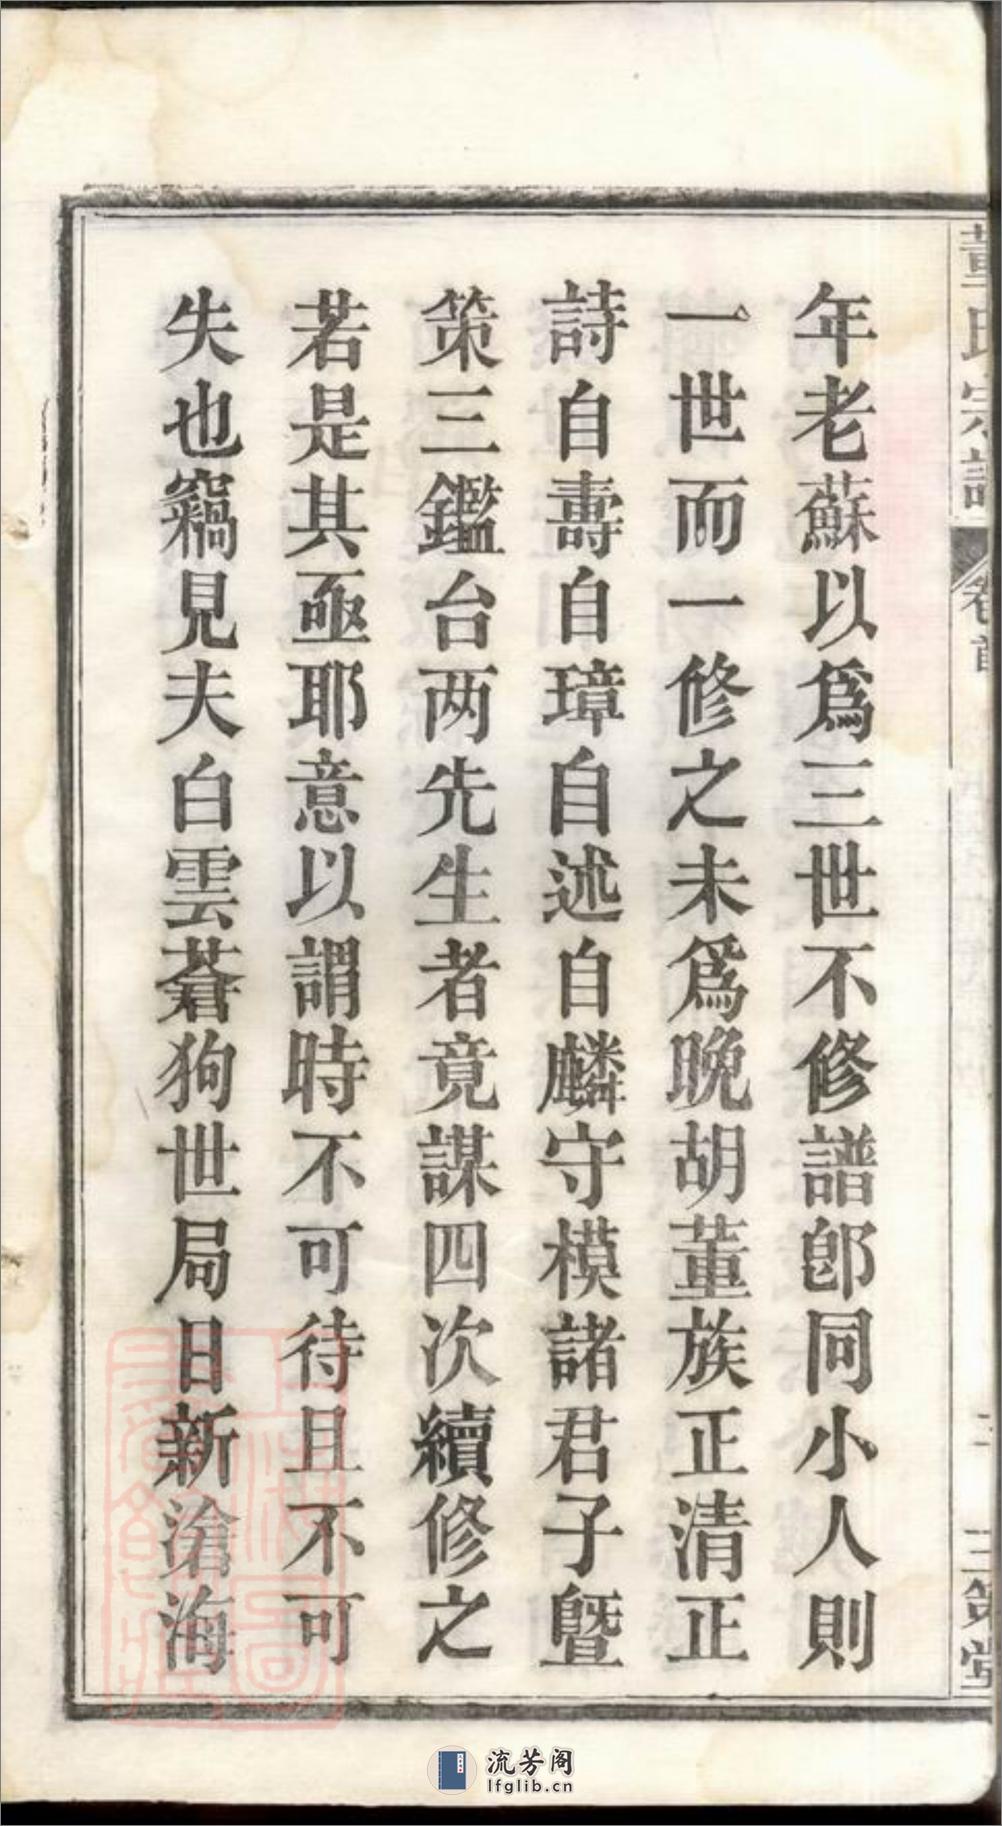 年老蘇以爲三世不修譜卽同小人則
一世而一修之未爲晚胡董族正清正
詩自壽自璋自述自麟守模諸君子曁
策三鑑台两先生者竟謀四次續修之
若是其亟耶意以謂時不可待且不可
失也竊見夫白雲蒼狗世局日新滄海
董氏宗譜
卷首
三策堂
流芳阁
lfglib.cn